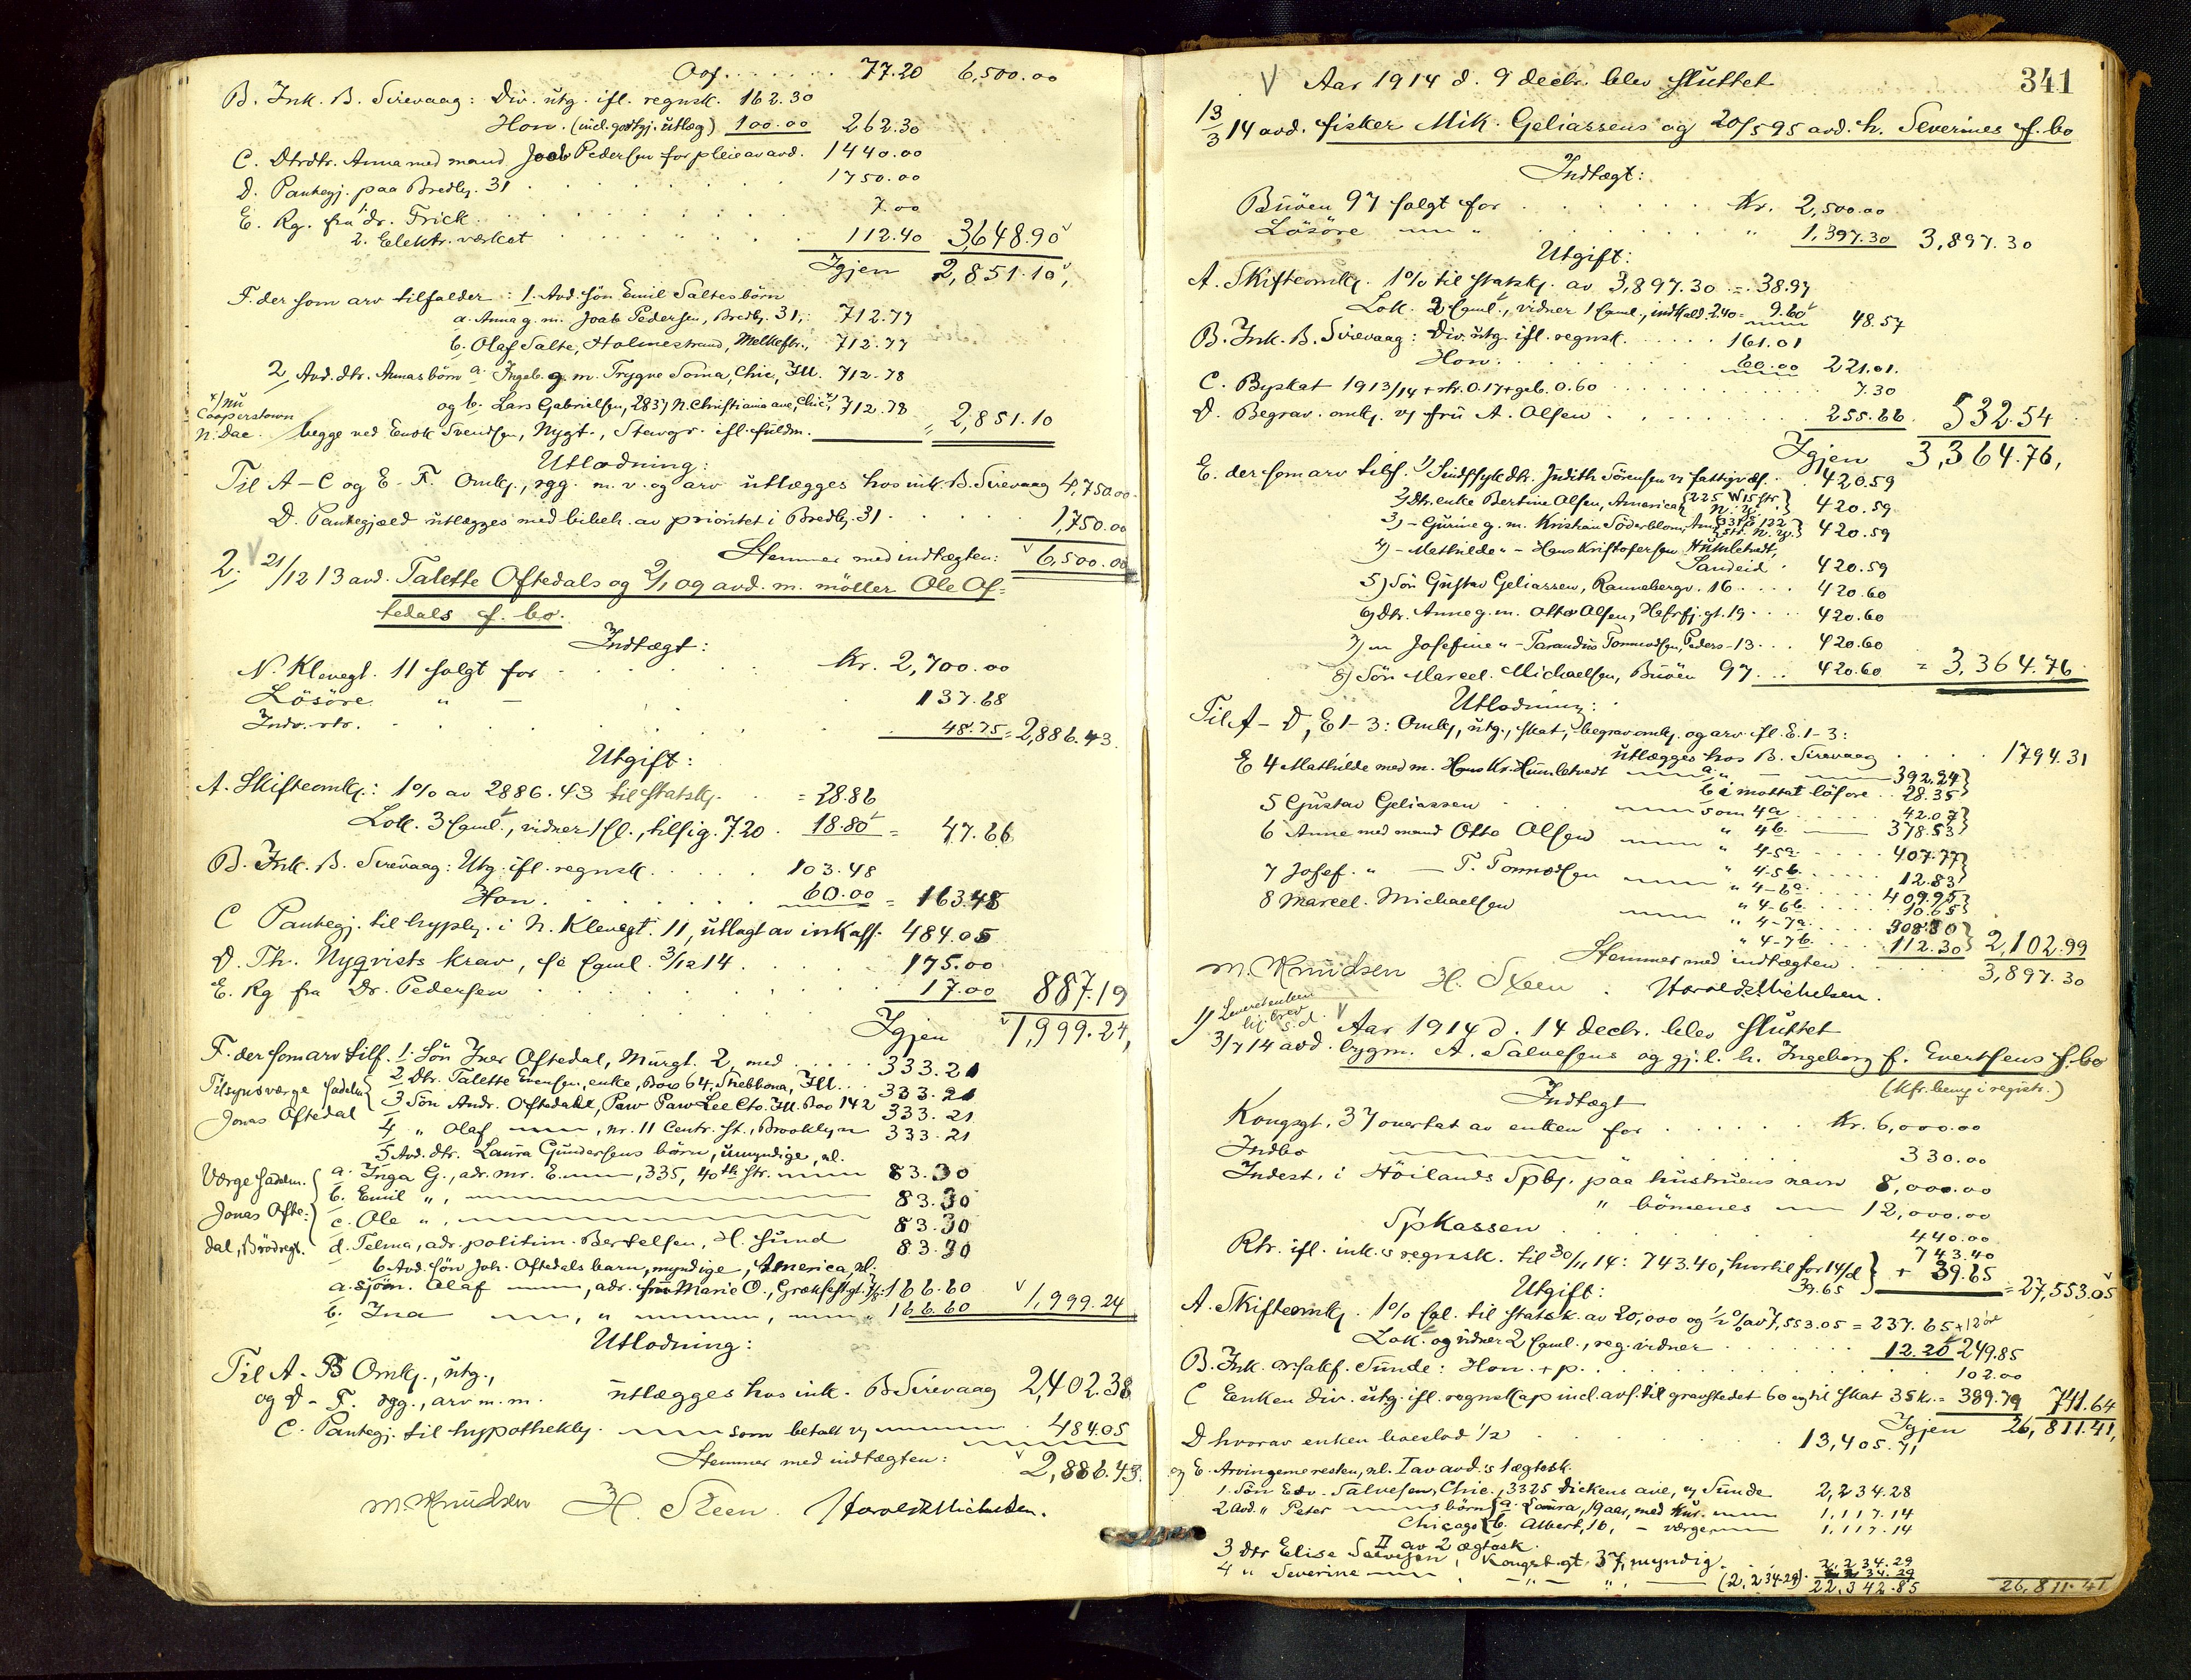 Ovf. . . . . . . 77.20 6,500.00
B. Ink. B. Sirevaag: Div. utg. ifl. regnsk. 162.30
Hon. (incl. godtgj. utlæg) 100.00 262.30
C. Dtrdtr. Anna med mand Joab Pedersen for pleie av avd. 1440.00
D. Pantegj. paa Bredby. 31 . . . . . 1750.00
E. Rg. fra 1. dr. Frick . . . . . 7.00
2. Elektr. værket . . . . . 112.40 3,648.90
Igjen 2,851.10,
F. der som arv tilfalder: 1. Avd. sön Emil Saltes börn
a. Anna g. m. Joab Pedersen, Bredby. 31,: 712.77
b. Olaf Salte, Holmestrand, Melkefbr., 712.77
2 Avd. dtr. Annas börn a. Ingeb. g. m. Trygve Soma, Chic, Ill. 712.78
x) nu Cooperstown N. Dac.
og b. Lars Gabrielsen, 2837 N. Christiania ave, Chic, x) 712.78
begge ved Enok Svendsen, Nygt., Stavgr. ifl. fuldm. = 2,851.10
Utlodning:
Til A-C og E-F. Omk., rgg. m. v. og arv utlægges hos ink. B. Sirevaag 4,750.00
D. Pantegjæld utlægges med bibeh. av prioritet i Bredby. 31 . . . . 1,750.00
Stemmer med indtægten: 6,500.00
2. 21/12 13 avd. Talette Oftedals og 9/1 09 avd. m. möller Ole Of-
tedals f. bo.
Indtægt:
N. Klevegt. 11 solgt for . . . . Kr. 2,700.00
Lösöre " — . . . 137.68
Indv. rtr. . . . . . 48.75 = 2,886.43
Utgift:
A. Skifteomk.: 1% av 2886.43 til statsk. . = 28.86
Lok. 3 saml., vidner 1 sl., tilsig. 7.20 . 18.80 = 47.66
B. Ink. B. Sirevaag: Utg. ifl. regnsk. . . . 103.48
Hon. . . . . . 60.00 = 163.48
C Pantegj. til hypby. i N. Klevegt. 11, utlagt av inkass. 484.05
D. Th. Nyqvists krav, se saml. 3/12 14 . . . . 175.00
E. Rg fra Dr. Pedersen . . . . . 17.00 887.19
Igjen 1,999.24,
F. der som arv tilf. 1. Sön Iver Oftedal, Murgt. 2, med . . . . 333.21
Tilsynsværge sadelm. Jonas Oftedal
2 Dtr. Talette Evensen, enke, Box 64, Shebbona, Ill. . . 333.21
3 Sön Andr. Oftedahl, Paw Paw Lee Cto. Ill. Box 142 333.21
4 " Olaf —, nr. 11 Centr. st., Brooklyn 333.21
5 Avd. dtr. Laura Gundersens börn, umyndige, nl.
Værge sadelm. Jonas Ofte-
dal, Brödregt.
a. Inga G., adr. mr. E. —, 335, 40th str. — 83.30
b. Emil ", — 83.30
c. Ole ", — 83.30
d. Telma, adr. politim. Bertelsen, H. sund 83.30
6 Avd. sön Joh. Oftedals barn, myndige, America, nl.
a. sjöm. Olaf —, adr. fru Marie O., Græksestgt. 7/8: 166.60
b. Ina —, " —, — 166.60 1,999.24
Utlodning:
Til A-B Omk., utg.,
og D-F. rgg., arv m. m. utlægges hos ink. B Sirevaag 2,402.38
C. Pantegj. til hypothekby. — som betalt ved — 484.05
Stemmer med indtægten: 2,886.43.
M. Knudsen H. Steen Harald Michelsen.
341
Aar 1914 d. 9 decbr. blev sluttet
13/3 14 avd. fisker Mik. Geliassens og 20/5 95 avd. h. Severines f. bo
Indtægt:
Buöen 97 solgt for . . . . . . Kr. 2,500.00
Lösöre — " . . . . " 1,397.30 3,897.30
Utgift:
A. Skifteomk. 1% til statsk. av 3,897.30 = 38.97
Lok. 2 saml., vidner 1 saml., indkald. 2.40 = 9.60 48.57
B. Ink. B. Sirevaag: Div. utg. ifl. regnsk. . . . . 161.01
Hon. . . . . 60.00 221.01.
C. Byskat 1913/14 + rtr. 0.17 + geb. 0.60 . . . . . 7.30
D. Begrav. omk. ved fru A. Olsen . . . . . 255.66 532.54
Igjen 3,364.76,
E. der som arv tilf. 1) Sindssyk dtr. Judith Sörensen ved fattigvæs. . 420.59
2) Dtr. enke Bertine Olsen, America 225 W 15 str. N. Y. 420.59
3) - Gurine g. m. Kristian Söderblom, Am. 531 E 122 str. N. Y. 420.59
4) - Mathilde " - Hans Kristofersen Humletvedt, Sandeid . 420.59
5) Sön Gustav Geliassen, Rannebergv. 16 . . . . 420.60
6) Dtr. Anne g. m. Otto Olsen, Hafrfj. gt. 19 . . . . 420.60
7) — Josefine " - Tarandus Tonnessen, Peders- 13 . . . 420.60
8) Sön Marcel. Michaelsen, Buöen 97 . . . 420.60 = 3,364.76
Utlodning:
Til A-D, E 1-3: Omk., utg., skat, begravomk. og arv ifl. E. 1-3:
utlægges hos B. Sirevaag . . . . 1794.31
E 4 Mathilde med m. Hans Kr. Humletvedt — a. — 392.24
b i mottat lösöre . . 28.35
5 Gustav Geliassen . . — som 4a . . . . . 42.07
" 4b. — 378.53
6 Anne med mand Otto Olsen — " 4-5a. . . . . 407.77
" 4-5b. . . . . 12.83
7 Josef. " — T. Tonnessen — " 4-6a. . . . . 409.95
" 4-6b. . . . . 10.65
8 Marcel. Michaelsen — " 4-7a. . . . . 308.30
" 4-7b. . . . 112.30 2,102.99
Stemmer med indtægten . . . . 3,897.30
M. Knudsen H. Steen . Harald Michelsen.
1) Levert enken bij. brev s. d.
Aar 1914 d. 14 decbr. blev sluttet
3/7 14 avd. bygm. A. Salvesens og gj. l. h. Ingeborg f. Evertsens f. bo
(kfr. bem. i registr.)
Indtægt
Kongsgt. 37 overtat av enken for . . . . . . Kr. 6,000.00
Indbo — . . . . 330.00
Indest. i Höilands Spby. paa hustruens navn 8,000.00
" börnenes — 12,000.00
Spkassen . . . . . 440.00
Rtr. ifl. ink.s regnsk. til 30/11 14: 743.40, hvortil for 14/d 743.40
39.65 + 39.65 = 27,553.05
Utgift:
A. Skifteomk. 1% sgl. til statsk. av 20,000 og 1/2% av 7,553.05 = 237.65 + 12 öre
Lok. og vidner 2 saml., reg. vidner . . . . . 12.20 249.85
B. Ink. orsakf. Sunde: Hon. + p. . . . . . 102.00
C Enken div. utg. ifl. regnskap incl. avs. til gravstedet 60 og til skat 35 k. = 389.79 741.64
Igjen 26,811.41,
D hvorav enken boeslod 1/2 . . . . . 13,405.71
og E. Arvingerne resten, nl. I av avd.s 1 ægtesk.
1. Sön Edv. Salvesen, Chic., 3325 Dickens ave, ved Sunde 2,234.28
2 Avd. " Peter — s börn a. Laura, 19 aar, med kur. — 1,117.14
Chicago b. Albert, 16, - værge — 1,117.14
II av 2 ægtesk.
3 Dtr Elise Salvesen, Kongsbgt. 37, myndig . . 2,234.29
4 " Severine — , — " — " , — (2,234.29) . 2,234.29
22,342.85 26,811.41